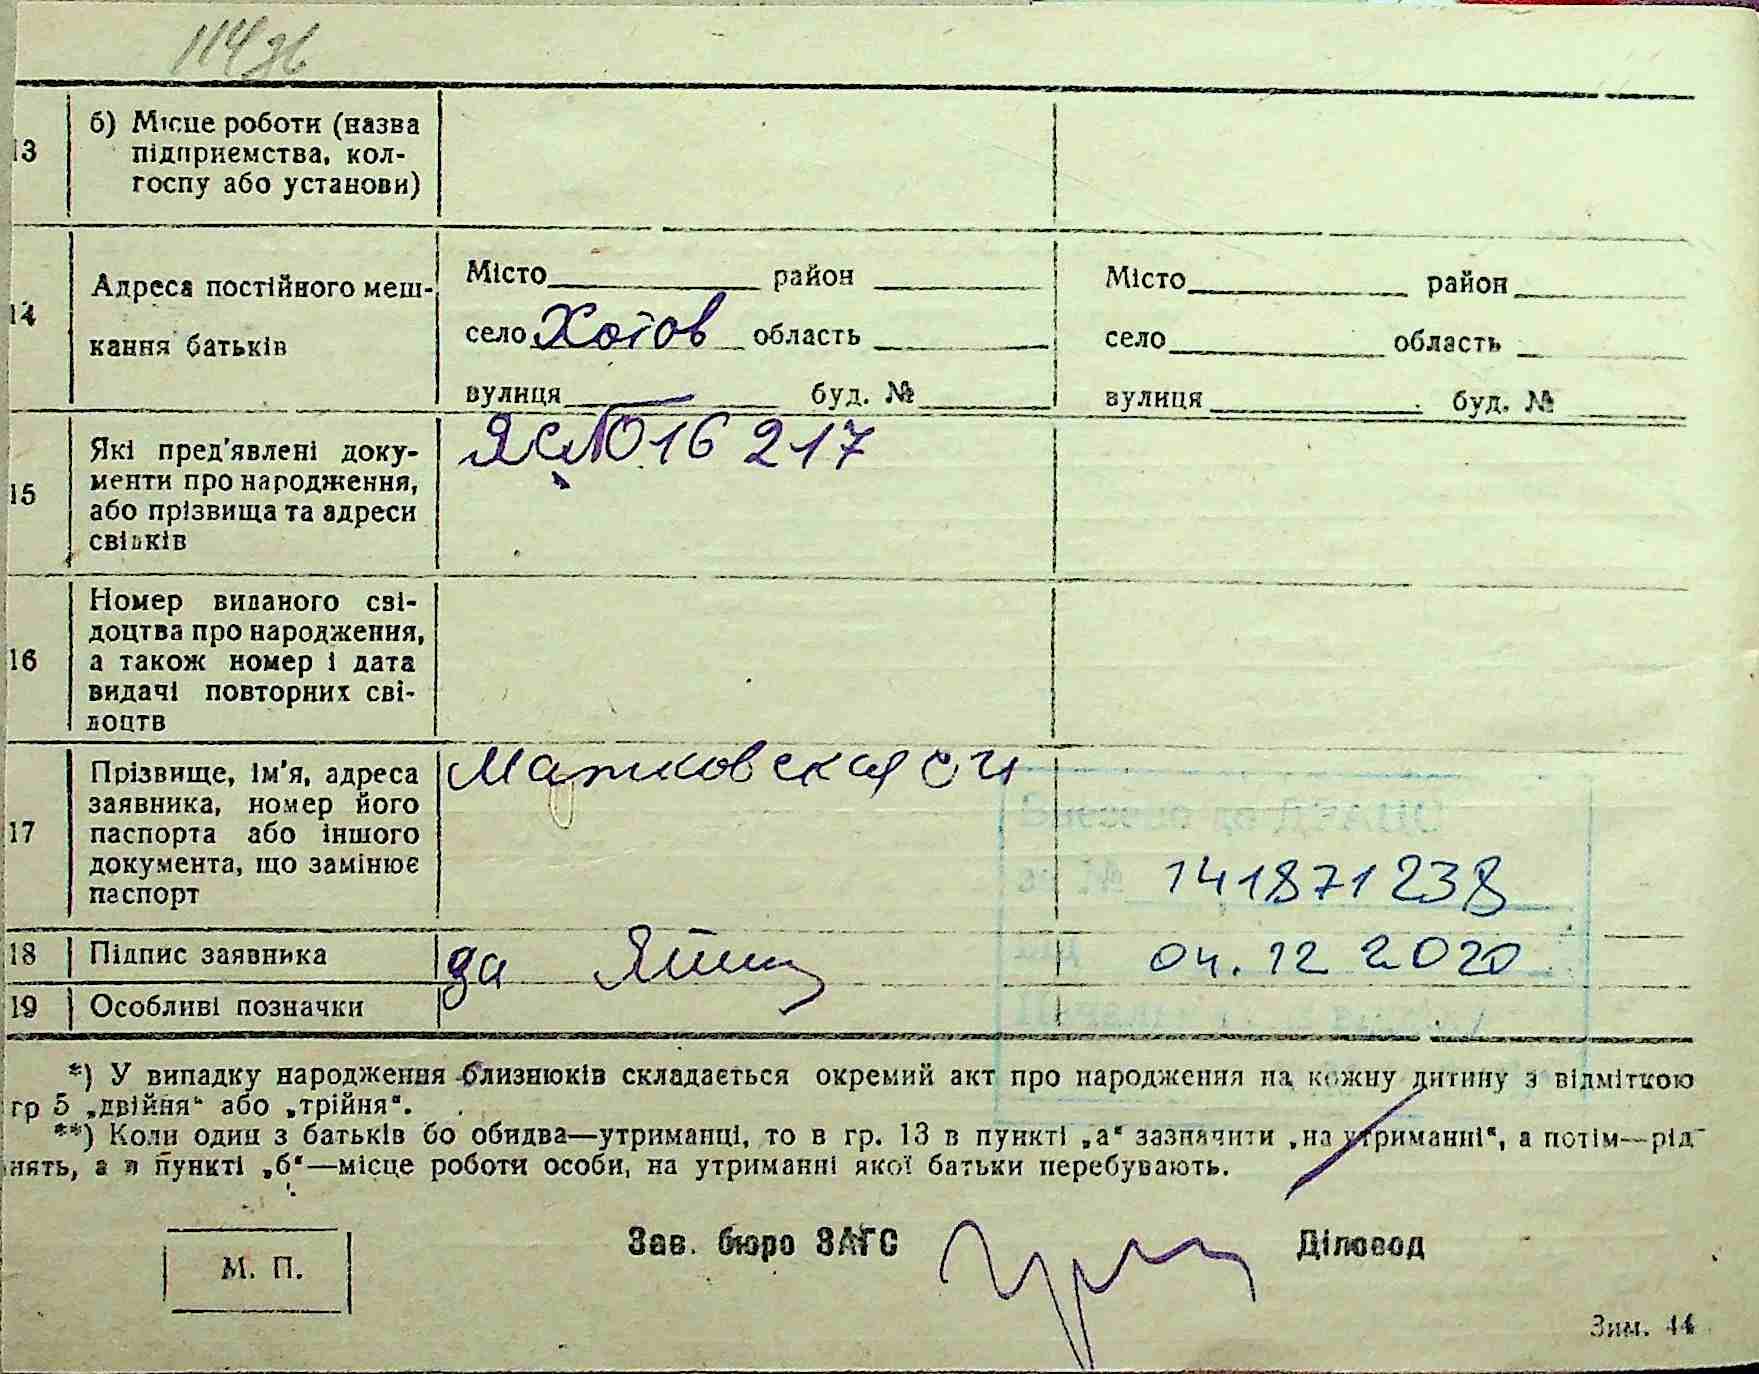 114
13
б) Місце роботи (назва
підприємства, кол-
госпу або установи)
14
Адреса постійного меш-
кання батьків
Місто район
село Хотов область
вулиця буд. №
Місто район
село область
вулиця буд. №
15
Які пред'явлені доку-
менти про народження,
або прізвища та адреси
свідків
ЯС№016217
16
Номер виданого сві-
доцтва про народження,
а також номер і дата
видачі повторних сві-
доцтв
17
Прізвище, ім'я, адреса
заявника, номер його
паспорта або іншого
документа, що замінює
паспорт
Внесено до ДРАЦС
за №
141871238
18
Підпис заявника
за
04.12 2020
19
Особливі позначки
*) У випадку народження близнюків складається окремий акт про народження на кожну дитину з відміткою
гр 5 „двійня“ або „трійня“.
**) Коли один з батьків бо обидва—утриманці, то в гр. 13 в пункті „а“ зазначити „на утриманні“, а потім—рід
нять, а в пункті „б“—місце роботи особи, на утриманні якої батьки перебувають.
М. П.
Зав. бюро ЗАГС
Діловод
Зим. 44